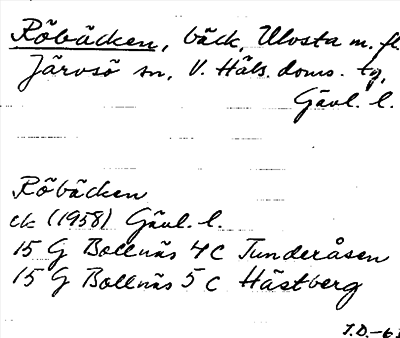 Röbäcken, bäck, Ulvsta m. fl.
Järvsö sn, V. Häls. doms. tg,
Gävl. l.
Röbäcken
ek (1958) Gävl. l.
15 G Bollnäs 4 C Tunderåsen
15 G Bollnäs 5 C Hästberg